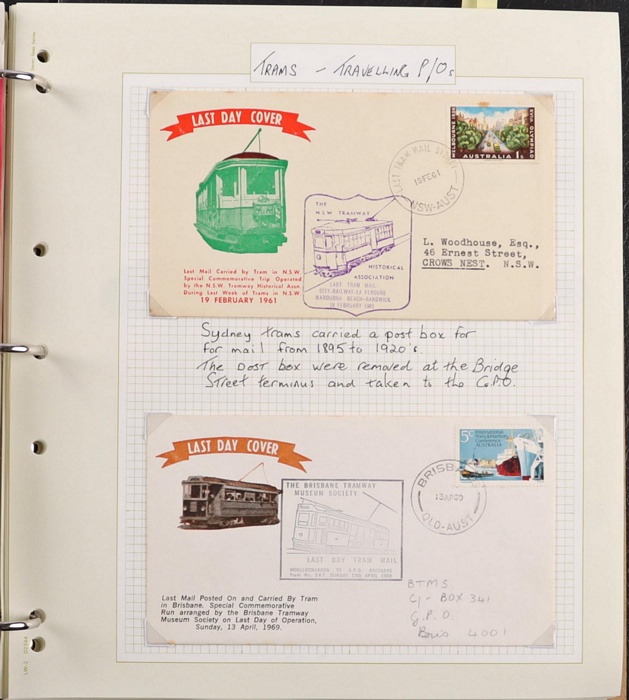 TRAMS - TRAVELLING P/Os
LAST DAY COVER
MELBOURNE 1956
OLYMPIC
AUSTRALIA 1s
LAST TRAM MAIL
NSW-AUST
THE
N.S.W. TRAMWAY
HISTORICAL
ASSOCIATION
LAST TRAM MAIL
CITY-RAILWAY-LA PEROUSE
MAROUBRA BEACH-RANDWICK
19 FEBRUARY 1961
L. Woodhouse, Esq.,
46 Ernest Street,
CROWS NEST. N.S.W.
Last Mail Carried by Tram in N.S.W.
Special Commemorative Trip Operated
by the N.S.W. Tramway Historical Assn.
During Last Week of Trams in N.S.W.
19 FEBRUARY 1961
Sydney trams carried a post box for
for mail from 1895 to 1920's.
The post box were removed at the Bridge
Street terminus and taken to the G.P.O.
LAST DAY COVER
5c
International
Ports & Harbours
Conference
AUSTRALIA
BRISBANE
13AP69
QLD-AUST
THE BRISBANE TRAMWAY
MUSEUM SOCIETY
LAST DAY TRAM MAIL
WOOLLOONGABBA TO G.P.O. BRISBANE
SUNDAY 13th APRIL 1969
BTMS
C/- BOX 341
G.P.O.
Bris 4001
Last Mail Posted On and Carried By Tram
in Brisbane. Special Commemorative
Run arranged by the Brisbane Tramway
Museum Society on Last Day of Operation,
Sunday, 13 April, 1969.